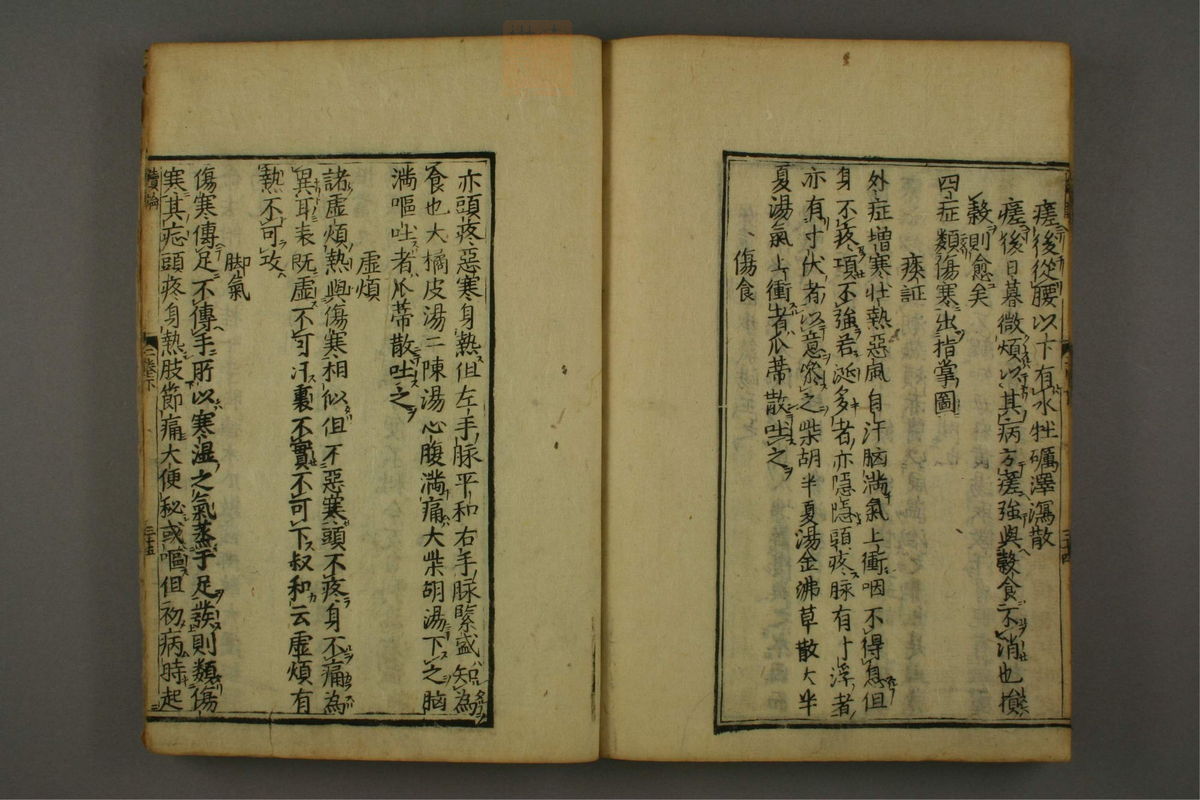 瘥後從腰以下有水牡礪澤瀉散
瘥後日暮微煩以其病方瘥強與穀食不消也損
穀則愈矣
四症類傷寒出指掌圖
痰証
外症増寒壮熱惡風自汗脑滿氣上衝咽不得息但
身不疼項不強若涎多者亦隱隱頭疼脉有寸浮者
亦有寸伏者以意參之柴胡半夏湯金沸草散大半
夏湯氣上衝者瓜蒂散吐之
傷食
亦頭疼惡寒身熱但左手脉平和右手脉緊盛知為
食也大橘皮湯二陳湯心腹滿痛大柴胡湯下之脑
滿嘔吐者瓜蒂散吐之
虚煩
諸虚煩熱與傷寒相似但不惡寒頭不疼身不痛為
異耳表既虚不可汗裏不實不可下叔和云虚煩有
熱不可攻
脚氣
傷寒傳足不傳手所以寒湿之氣蒸于足發則類傷
寒其症頭疼身熱肢節痛大便秘或嘔但初病時起
二卷下
三十五